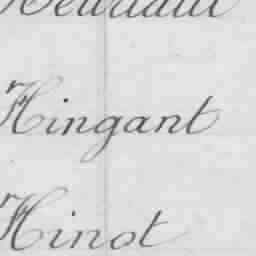 Hingant
Hinot